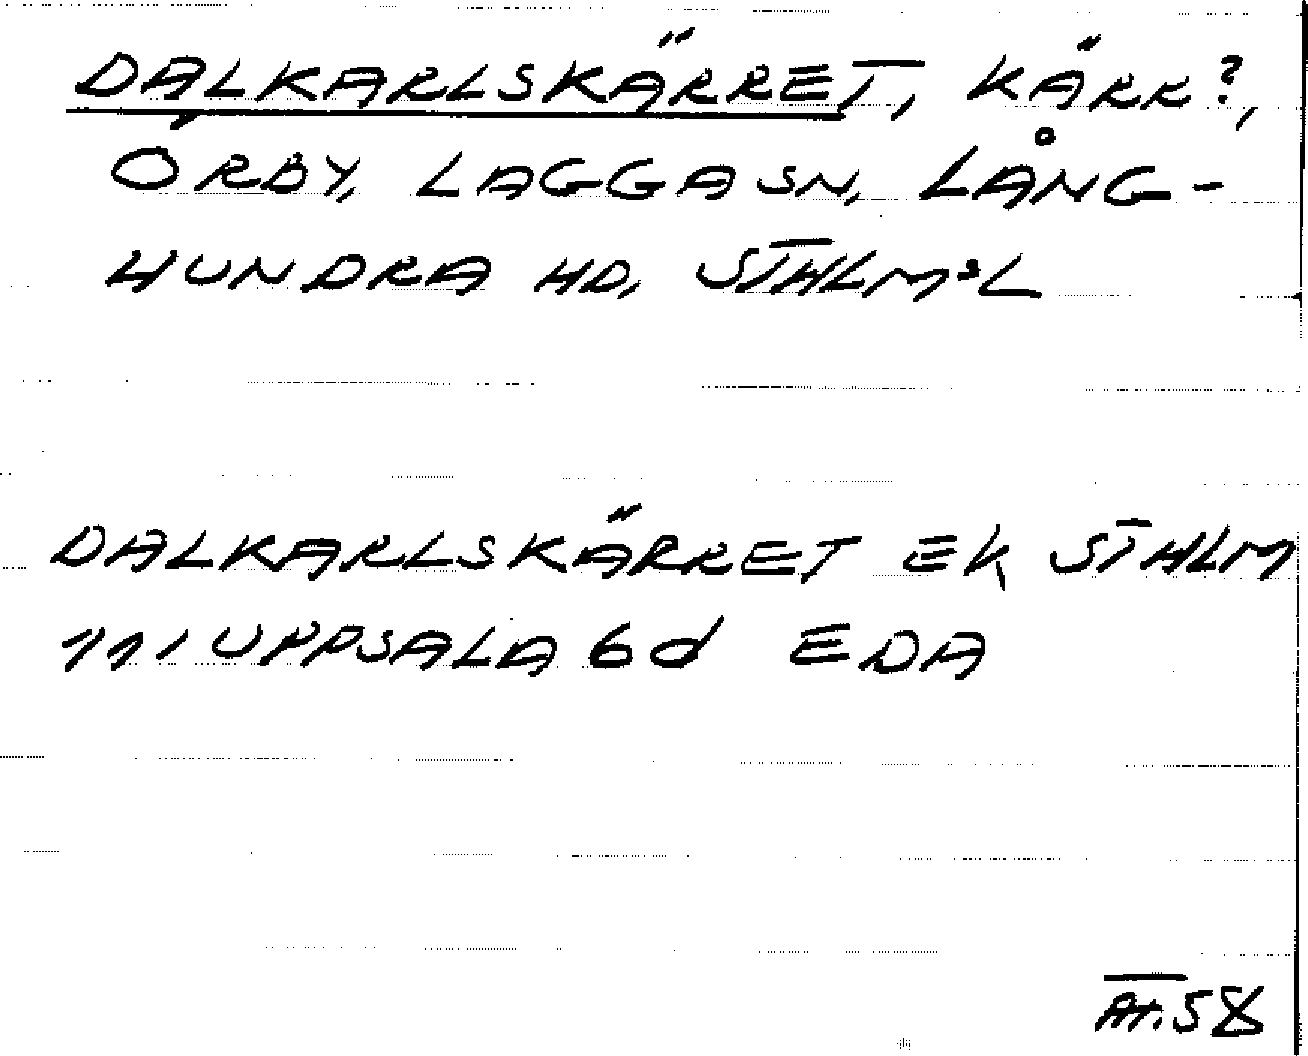 DALKARLSKÄRRET, KÄRR?,
ÖRBY, LAGGA SN, LÅNG-
HUNDRA HD, STHLMSL
DALKARLSKÄRRET EK STHLM
111 UPPSALA 6d EDA
At. 58